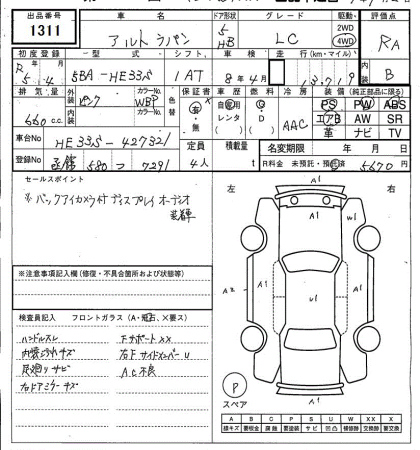 出品番号 車名 ドア形状 グレード 駆動 評価点
1311 アルトラパン 5 HB LC 2WD 4WD RA
初度登録 型式 シフト 車検 走行 (km・マイル)
R5.4 5BA-HE33S 1AT 8年4月 B
排気量 外装 カラーNo. 内装 カラーNo. 色替 保証書 車歴 燃料 冷房 装備 (純正部品に限る)
660cc ピンク WBP 有・無 自家用 レンタ AAC PS PW ABS
エアB AW SR
革 ナビ TV
車台No HE33S-427321 定員 積載量 名変期限 年 月 日
登録No 580 つ 7291 4人 t R料金 未預託・預託済 5670円
セールスポイント
※バックアイカメラ付ディスプレイオーディオ
装着車
左 右
A1
A1 W1
A2 A1 U1 A1
A1
※注意事項記入欄 (修復・不具合箇所および状態等)
検査員記入 フロントガラス (A・飛石・X要ス)
ハンドルスレ FサポートXX
内装 キズ 右FサイドメンバーU
足廻リサビ AC不良
右ドアミラーキズ
P
スペア
A B C P S U W XX X
線キズ 要板金 腐蝕 要塗装 サビ 凹凸 補修跡 交換跡 要交換